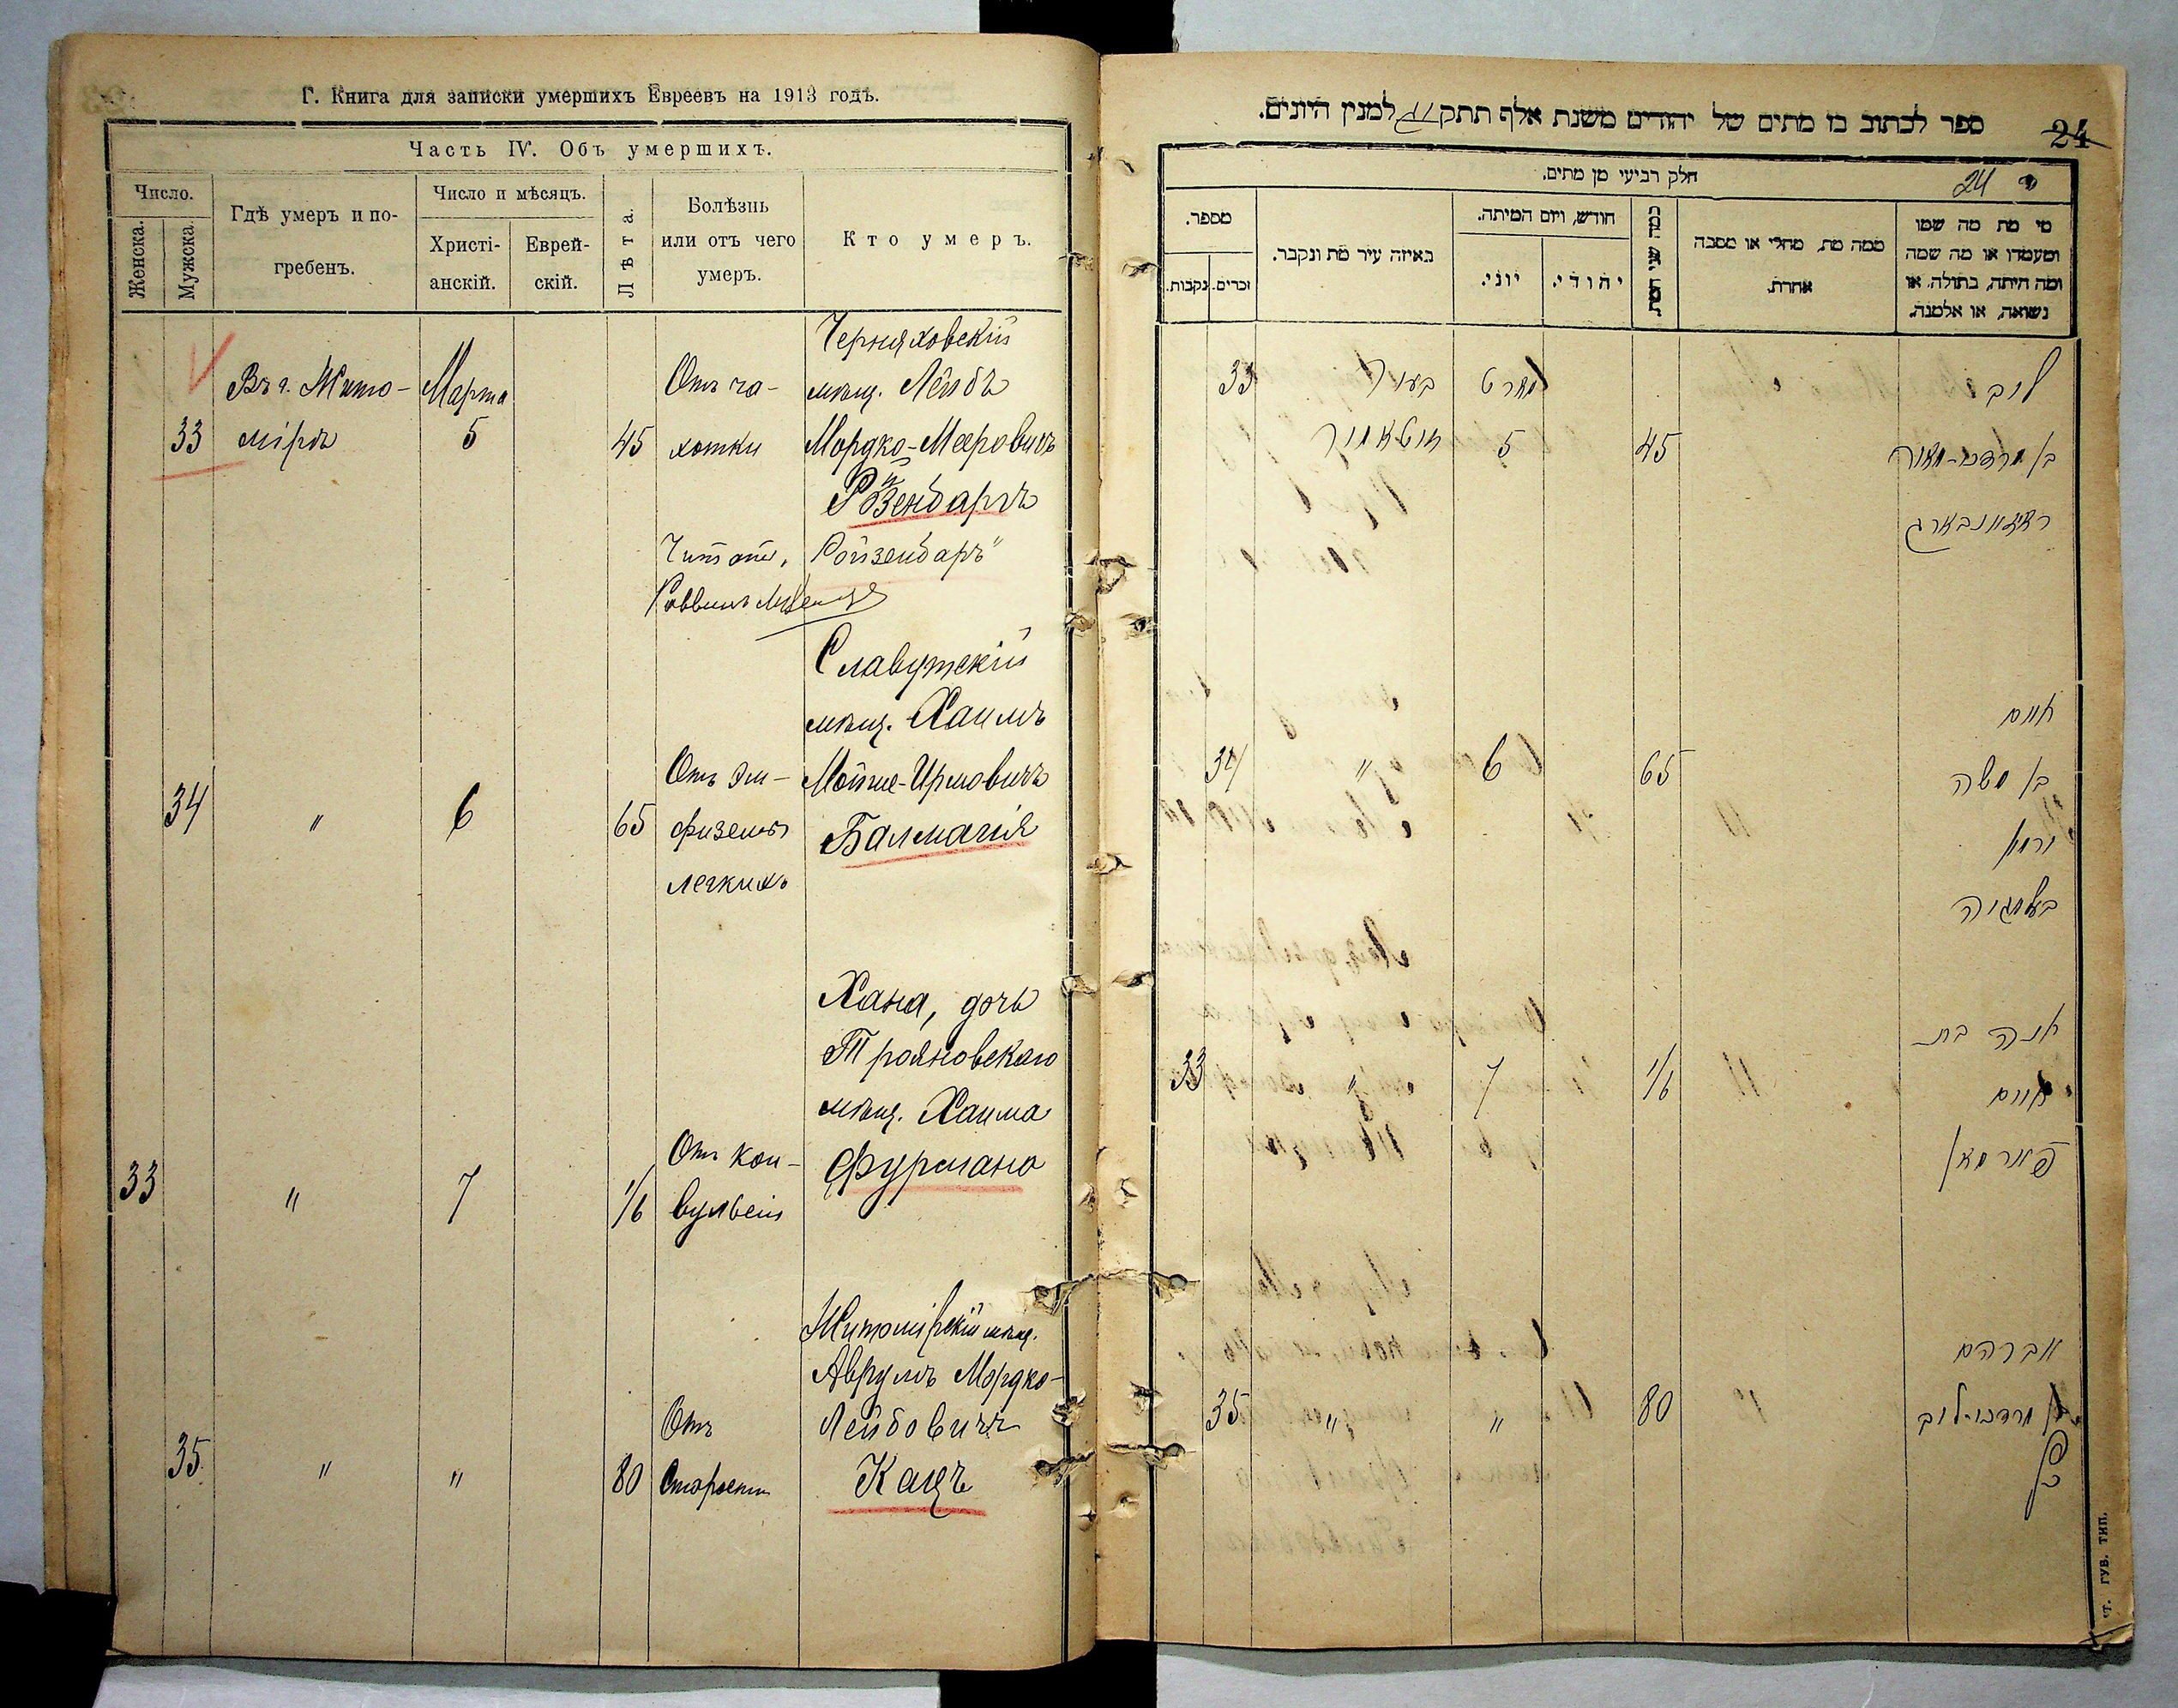 Г. Книга для записки умершихъ Евреевъ на 1913 годъ.
Часть IV. Объ умершихъ.
Число.
Женска.
Мужска.
Гдѣ умеръ и по-
гребенъ.
Число и мѣсяцъ.
Христі-
анскій.
Еврей-
скій.
Лѣта.
Болѣзнь
или отъ чего
умеръ.
Кто умеръ.
Черняховскій
Въ г. Жито- Марта Отъ ча- мѣщ. Лейбъ
33 мірѣ 5 45 хотки Мордко-Мееровичъ
Розенбаргъ
Читать, Ройзенбаргъ"
Раввинъ
Славутскій
мѣщ. Хаимъ
Отъ эм- Мойше-Ирмовичъ
34 " 6 65 физемы Балмагія
легкихъ
Хана, дочь
Трояновскаго
мѣщ. Хаима
Отъ кон- Фурмана
33 " 7 1/6 вульсій
Житомірскій мѣщ.
Аврумъ Мордко-
Отъ Лейбовичъ
35 " " 80 старости Кацъ
24
ספר לכתוב בו מתים של יהודים משנת אלף תתק למנין היונים.
חלק רביעי מן מתים.
24
מי מת מה שמו
ומעמדו או מה שמה
ומה היתה, בתולה, או
נשואה, או אלמנה.
ממה מת, מחלי או מסבה
אחרת.
כמה שני המת.
חודש, ויום המיתה.
יהודי.
יוני.
באיזה עיר מת ונקבר.
מספר.
זכרים.
נקבות.
ליב מארט בעיר 33
בן מרדכי-מאיר 45 5 זיטאמיר
ראיזענבארג
חיים
בן משה 65 6 " 34
ירמי
באלמגיה
חנה בת
חיים 1/6 7 " 33
פורמאן
אברהם
בן מרדכי-ליב 80 " " 35
כץ
ГУБ. ТИП.